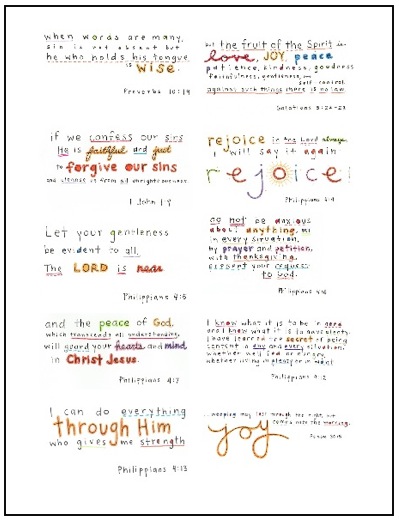 when words are many,
sin is not absent but
he who holds his tongue
is wise.
Proverbs 10:19
but the fruit of the Spirit is
love, JOY, peace
patience, kindness, goodness
faithfulness, gentleness, and
self-control.
against such things there is no law.
Galatians 5:22-23
if we confess our sins
He is faithful and just
to forgive our sins
and cleanse us from all unrighteousness
1 John 1:9
rejoice in the Lord always
I will say it again
rejoice!
Philippians 4:4
Let your gentleness
be evident to all.
The LORD is near
Philippians 4:5
do not be anxious
about anything,
in every situation,
by prayer and petition,
with thanksgiving,
present your requests
to God.
Philippians 4:6
and the peace of God,
which transcends all understanding,
will guard your hearts and mind,
in Christ Jesus.
Philippians 4:7
I know what it is to be in need
and I know what it is to have plenty.
I have learned the secret of being
content in any and every situation,
whether well fed or hungry,
whether living in plenty or in want
Philippians 4:12
I can do everything
through Him
who gives me strength
Philippians 4:13
...weeping may last through the night, but
comes with the morning.
joy
Psalm 30:5